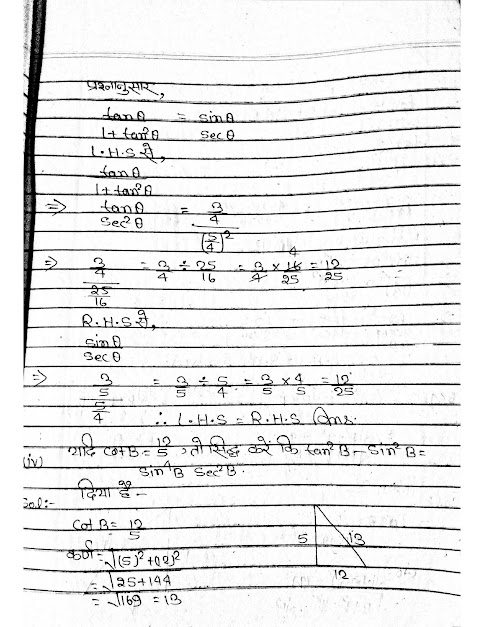 प्रश्नानुसार,
tanθ / 1+tan²θ = sinθ / secθ
L.H.S से,
tanθ / 1+tan²θ
⇒ tanθ / sec²θ = 3/4 / (5/4)²
⇒ 3/4 / 25/16 = 3/4 ÷ 25/16 = 3/4 × 16/25 = 12/25
4
R.H.S से,
sinθ / secθ
⇒ 3/5 / 5/4 = 3/5 ÷ 5/4 = 3/5 × 4/5 = 12/25
∴ L.H.S = R.H.S Ans.
(iv) यदि cotB = 12/5, तो सिद्ध करें कि tan²B - sin²B =
sin⁴B sec²B.
Sol:- दिया है -
cot B = 12/5
कर्ण = √(5)²+(12)²
= √25+144
= √169 = 13
5 13
12